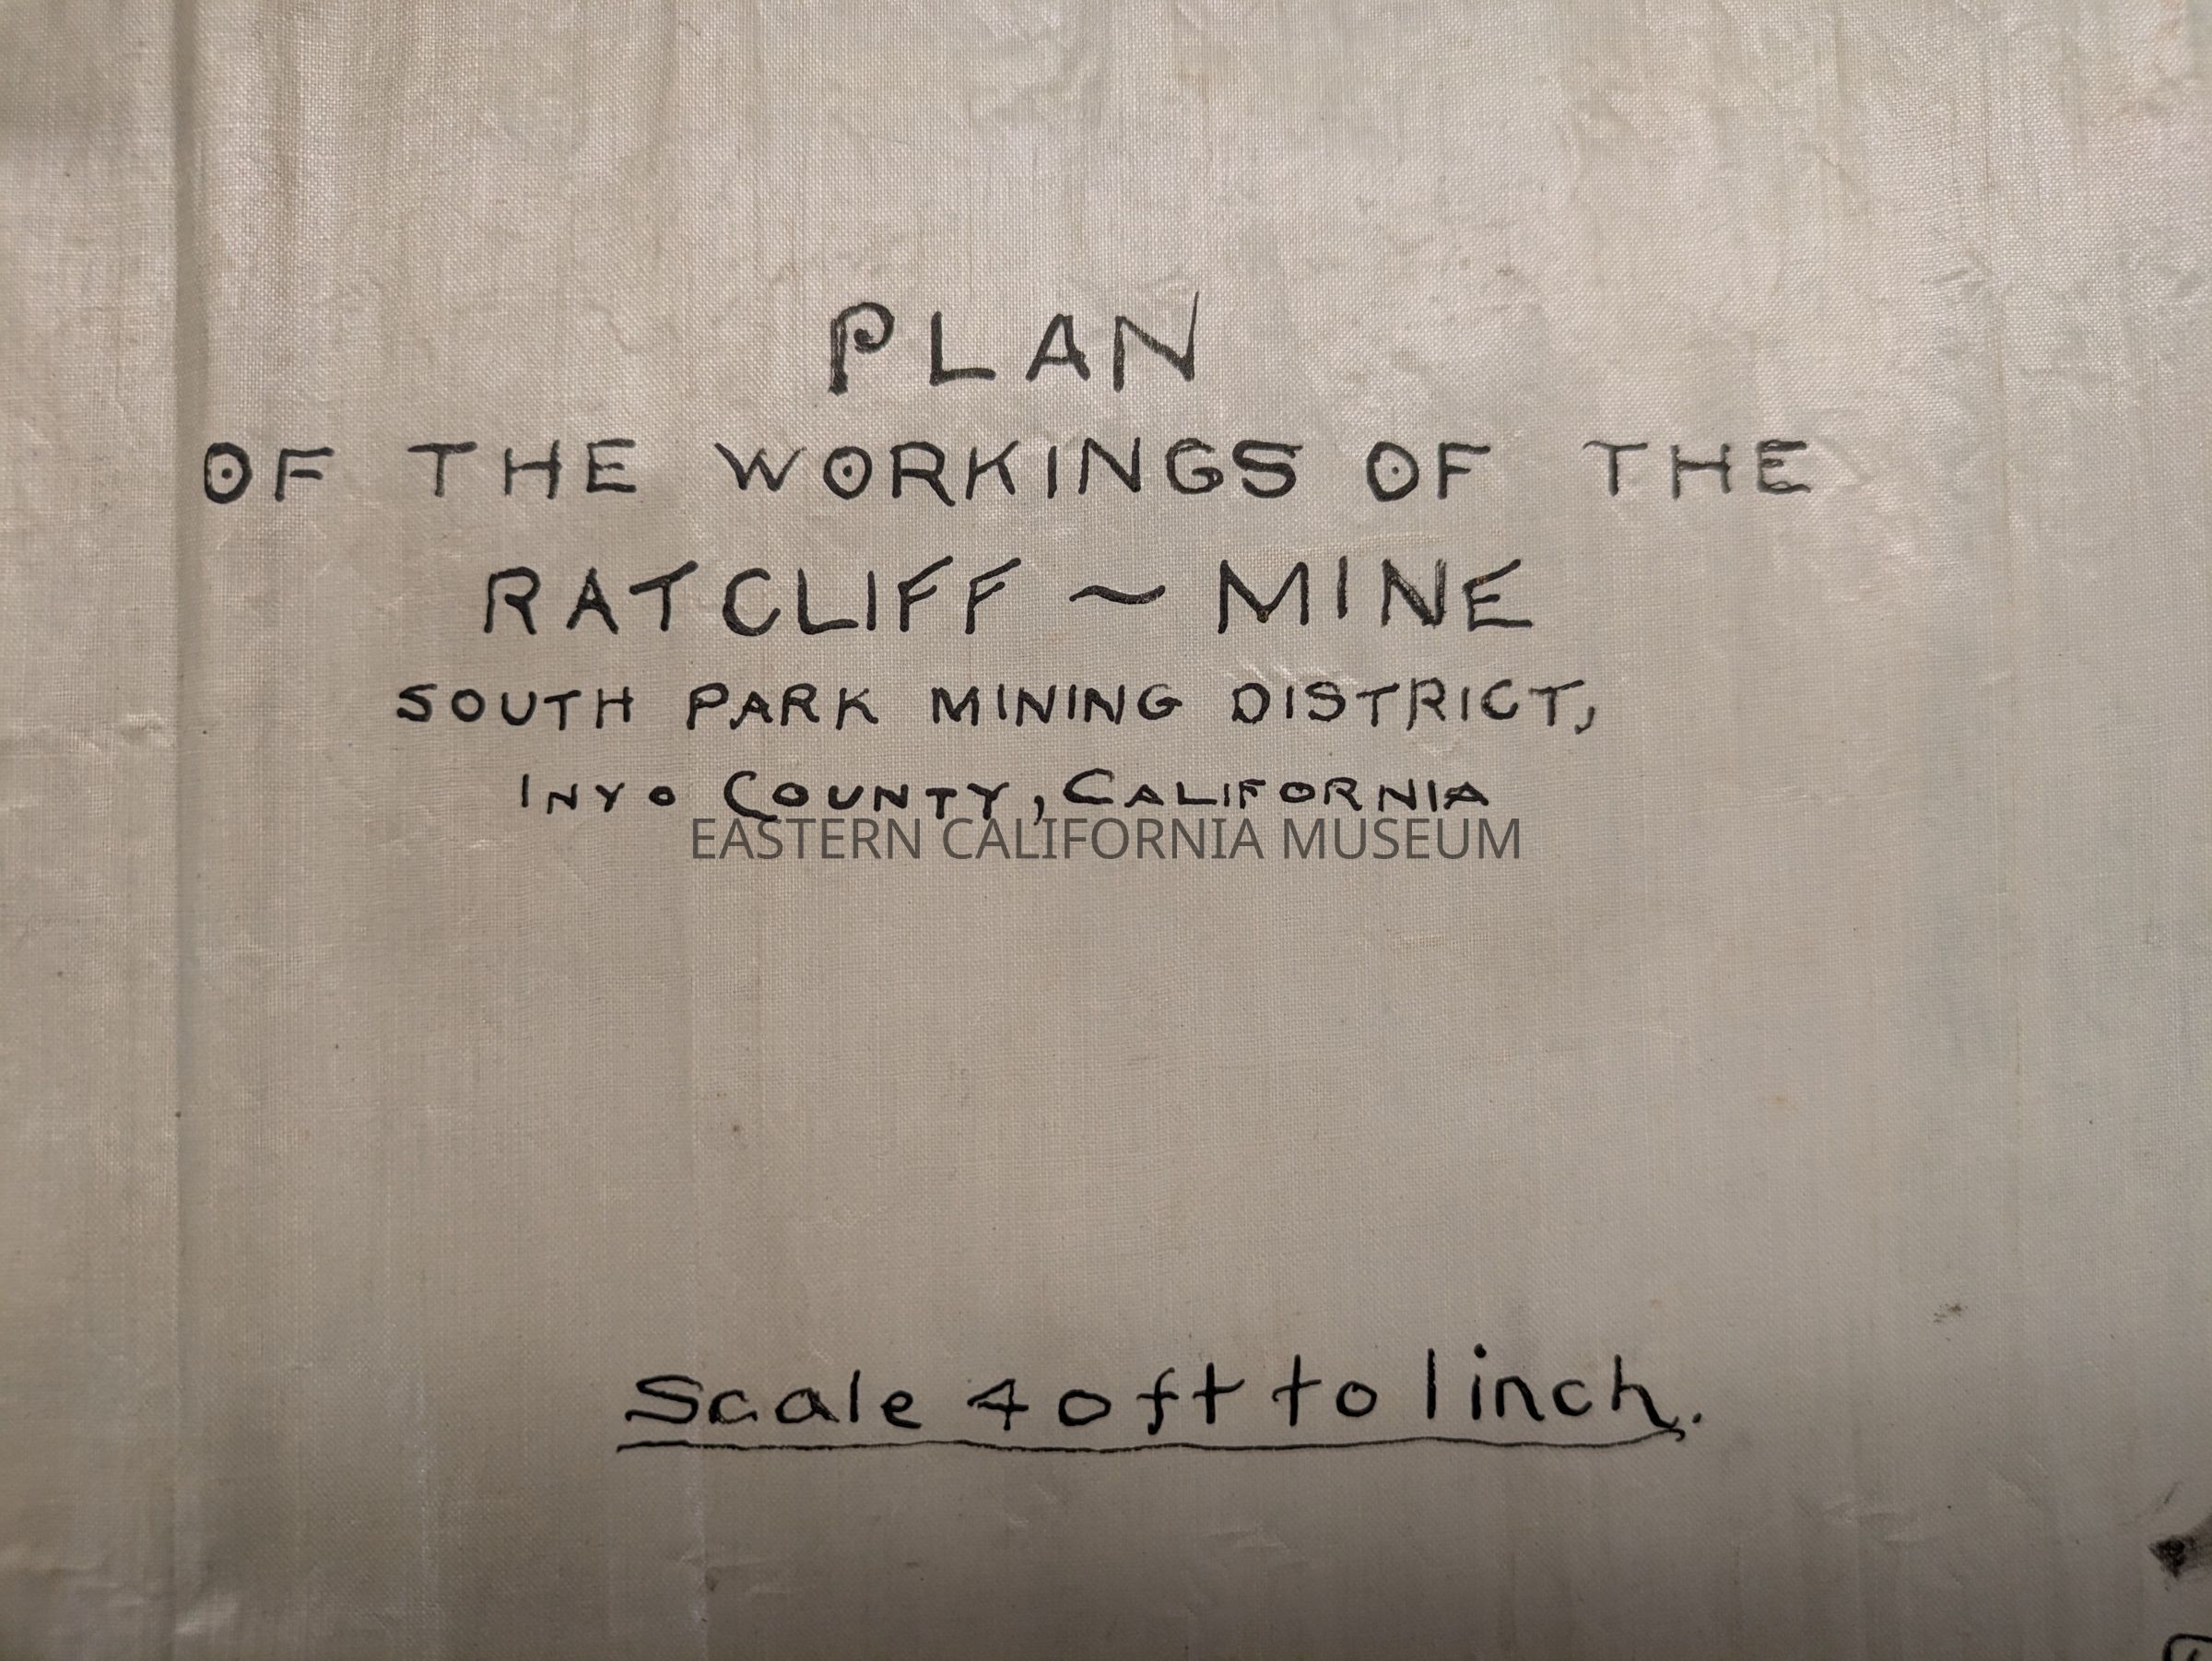 PLAN
OF THE WORKINGS OF THE
RATCLIFF ~ MINE
SOUTH PARK MINING DISTRICT,
INYO COUNTY, CALIFORNIA
EASTERN CALIFORNIA MUSEUM
Scale 40ft to 1inch.